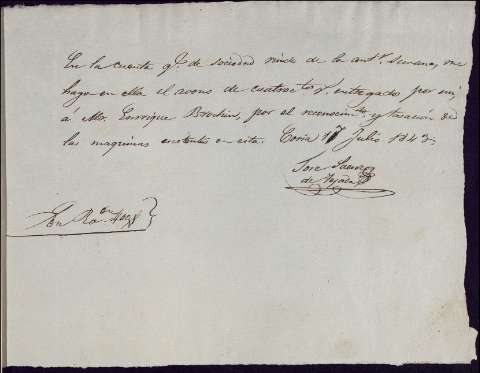 En la cuenta q.e de sociedad rinde de la ant.r Semana, me
hago en ella el avono de cuatroc.tos r.s entregados por mi
a Mr. Enrrique Brochin, por el reconocim.to y tasación de
las maquinas existentes en esta. Coria 17 Julio 1843.
Jose Saenz
de Tejada
Son R.s 400 }